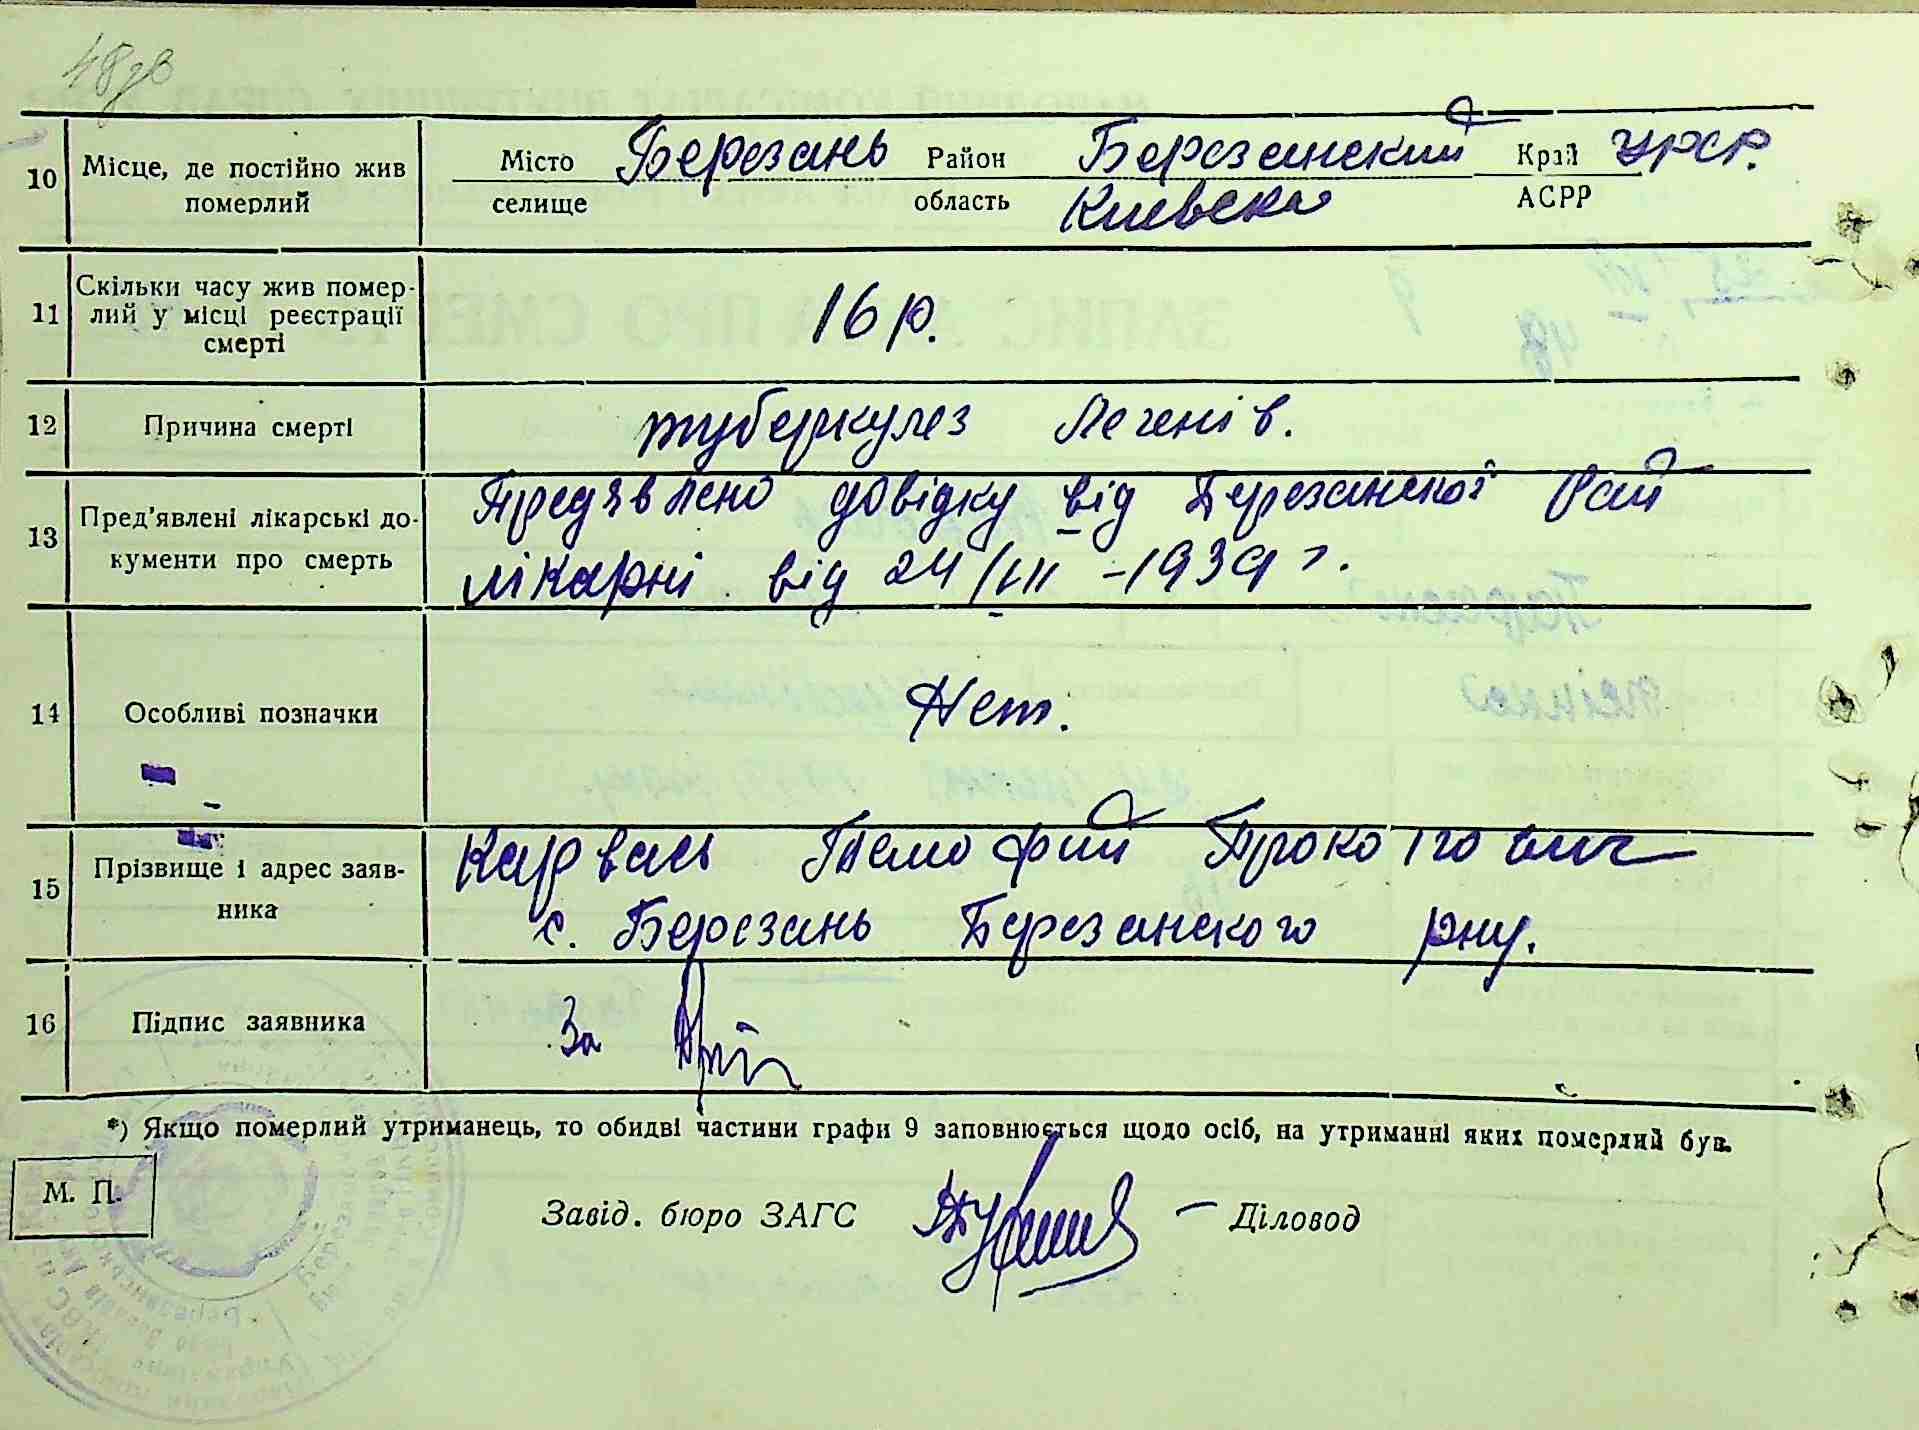 48зв
10 Місце, де постійно жив померлий
Місто Березань Район Березанский Край УРСР.
селище область Киевска АСРР
11 Скільки часу жив помер-
лий у місці реєстрації
смерті
16 р.
12 Причина смерті туберкулез легенів.
13 Пред'явлені лікарські до-
кументи про смерть
Предявлено довідку від Березанскої Рай
лікарні від 24/VII -1939 г.
14 Особливі позначки Нет.
15 Прізвище і адрес заяв-
ника
Карвась Темофий Прокопович
с. Березань Березанского рну.
16 Підпис заявника За
*) Якщо померлий утриманець, то обидві частини графи 9 заповнюється щодо осіб, на утриманні яких померлий був.
М. П.
Завід. бюро ЗАГС — Діловод